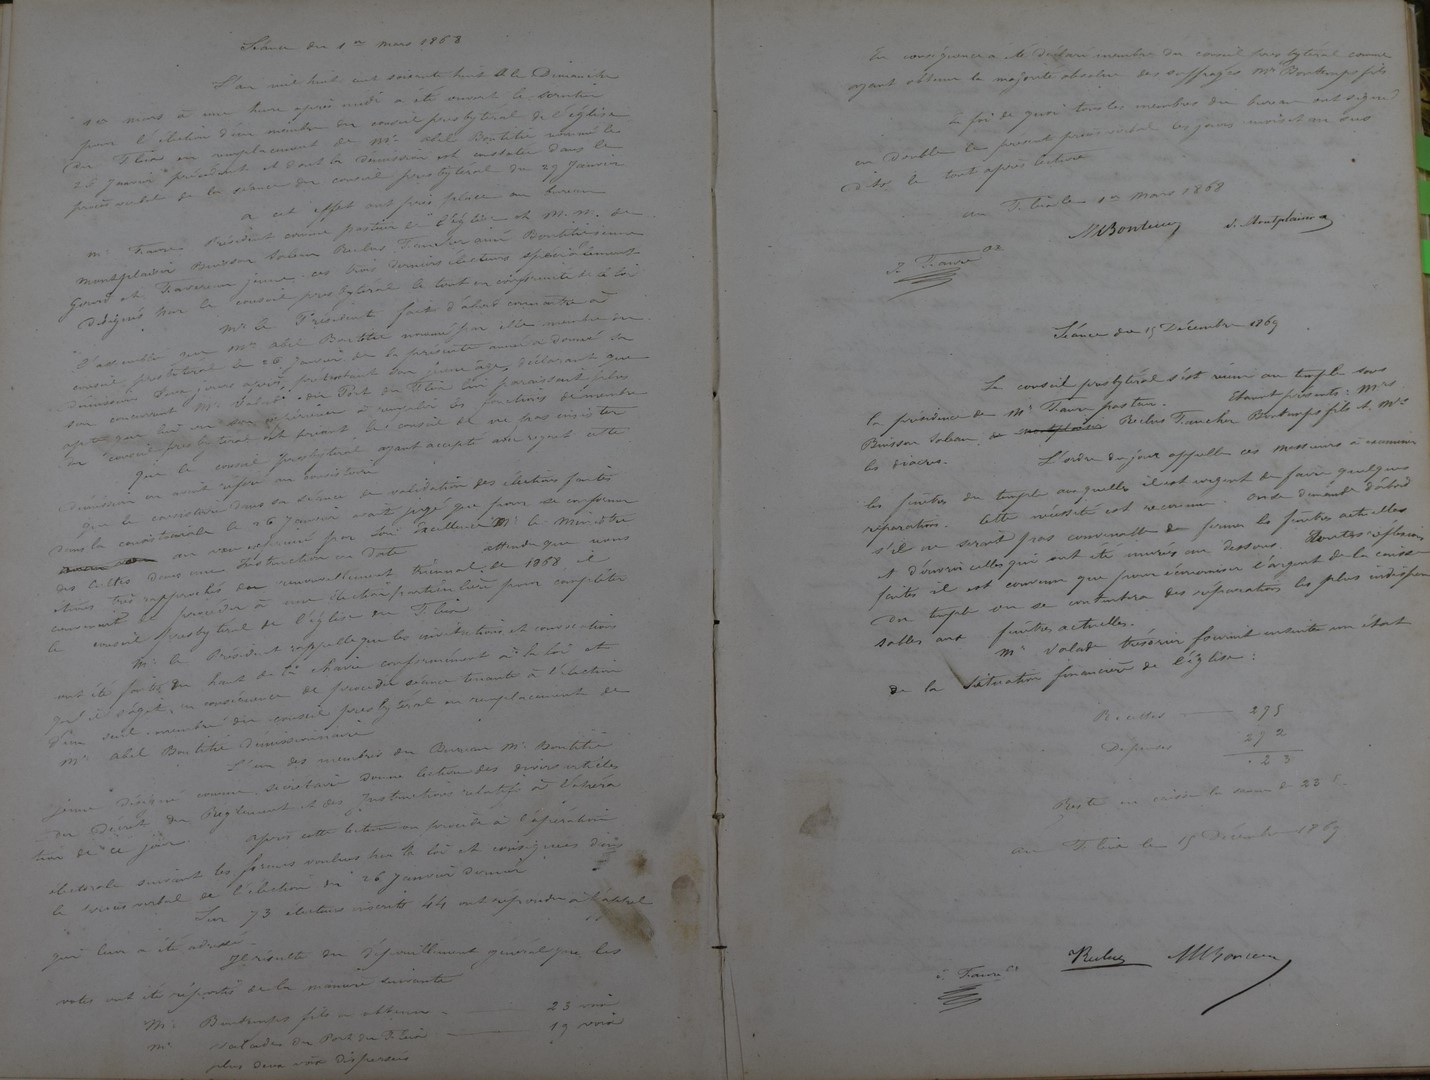 Séance du 1er mars 1868
L'an mil huit cent soixante huit le Dimanche
1er mars à une heure après midi a été ouvert le scrutin
pour l'élection d'un membre du conseil presbytéral de l'église
du Fleix en remplacement de Mr. Abel Bontitié nommé le
26 Janvier précédent et dont la démission est constatée dans le
procès verbal de la séance du conseil presbytéral du 29 Janvier
A cet effet ont pris place au bureau
M. Faure Président comme pasteur de l'église et M. M. de
Montplaisir Buisson Salem Reclus Faucher ainé Bontitié
Gouru et jeune ces trois derniers électeurs spécialement
désignés par le conseil presbytéral le tout en conformité de la loi
Mr le Président fait d'abord connaître à
l'assemblée que Mr. Abel Bontitié nommé par elle membre du
conseil presbytéral le 26 Janvier de la présente année a donné sa
démission deux jours après, prétextant son jeune âge, déclarant que
son concurrent Mr. Valade du Port du Fleix lui paraissant plus
apte que lui à remplir les fonctions de membre
du conseil presbytéral et priant le conseil de ne pas insister
Que le conseil presbytéral ayant accepté avec regret cette
démission en avait référé au consistoire
que le consistoire dans sa séance de validation des élections faites
dans la consistoriale le 26 Janvier avait jugé que pour se conformer
au vœu exprimé par Son Excellence Mr. le Ministre
des Cultes dans une Instruction en date attendu que nous
étions très rapprochés du renouvellement triennal de 1868 il
convenait de procéder à une élection particulière pour compléter
le conseil presbytéral de l'église du Fleix
Mr. le Président rappelle que les invitations et convocations
ont été faites du haut de la chaire conformément à la loi et
qu'il s'agit en conséquence de procéder séance tenante à l'élection
d'un seul membre du conseil presbytéral en remplacement de
Mr. Abel Bontitié démissionnaire
L'un des membres du Bureau Mr. Bontitié
désigné comme secrétaire donne lecture des divers articles
du Décret du Règlement et des Instructions relatifs à l'opéra
tion de ce jour. Après cette lecture on procède à l'opération
électorale suivant les formes voulues par la loi et consignées dans
le procès verbal de l'élection du 26 Janvier dernier
Sur 73 électeurs inscrits 44 ont répondu à l'appel
qui leur a été adressé.
Il résulte du dépouillement général que les
votes ont été répartis de la manière suivante
Mr. Bontemps fils a obtenu 23 voix
Mr. Valade du Port du Fleix 19 voix
plus deux voix dispersées
En conséquence a été déclaré membre du conseil presbytéral comme
ayant obtenu la majorité absolue des suffrages Mr Bontemps fils
En foi de quoi tous les membres du bureau ont signé
en double le présent procès verbal les jours mois et an que
dits le tout après lecture
au Fleix le 1er Mars 1868
J. Montplaisir
Faure
Séance du 15 Décembre 1869
Le conseil presbytéral s'est réuni au temple sous
la présidence de Mr. Faure pasteur. Etaient présents: Mrs
Buisson Salem, Reclus Faucher Bontemps fils et Mrs
les diacres. L'ordre du jour appelle ces messieurs à examiner
les fenêtres du temple auxquelles il est urgent de faire quelques
réparations. Cette nécessité est reconnue. On se demande d'abord
s'il ne serait pas convenable de fermer les fenêtres actuelles
et d'ouvrir celles qui ont été murées au dessous. Toutes réflexions
faites il est convenu que pour économiser l'argent de la caisse
du temple on se contentera des réparations les plus indispen
sables aux fenêtres actuelles.
Mr Valade trésorier fournit ensuite un état
de la situation financière de l'église:
Recettes 295
Dépenses 272
23
Reste en caisse la somme de 23 f.
au Fleix le 15 Décembre 1869
Faure
Reclus